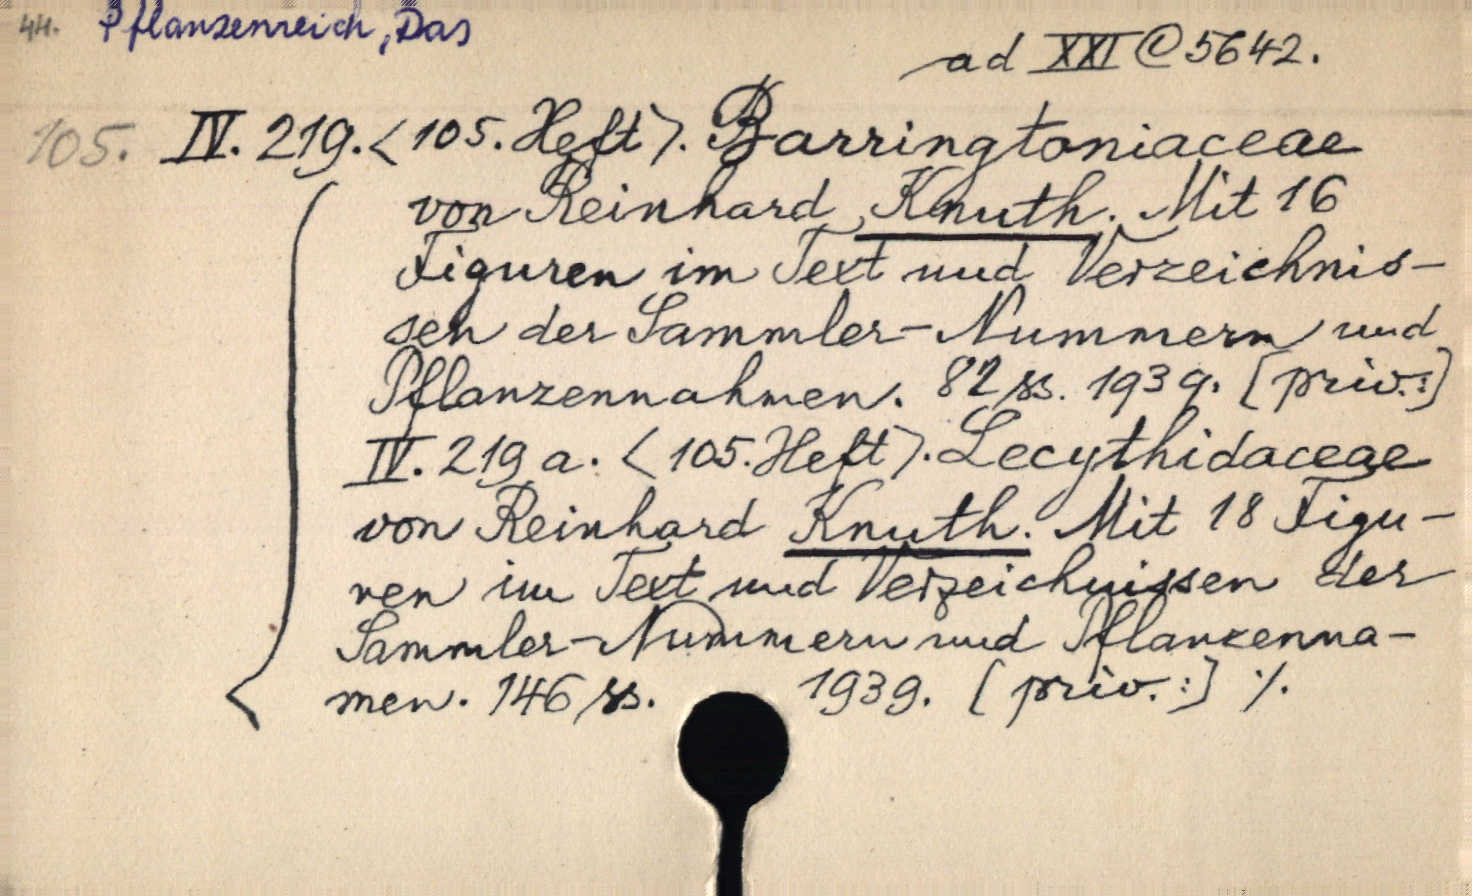 44. Pflanzenreich, Das
ad XXI C 5642.
105. IV. 219. <105. Heft>. Barringtoniaceae
von Reinhard Knuth. Mit 16
Figuren im Text und Verzeichnis-
sen der Sammler-Nummern und
Pflanzennahmen. 82 ss. 1939. [priv.:]
IV. 219 a. <105. Heft>. Lecythidaceae
von Reinhard Knuth. Mit 18 Figu-
ren im Text und Verzeichnissen der
Sammler-Nummern und Pflanzenna-
men. 146 ss. 1939. [priv.:] ./.